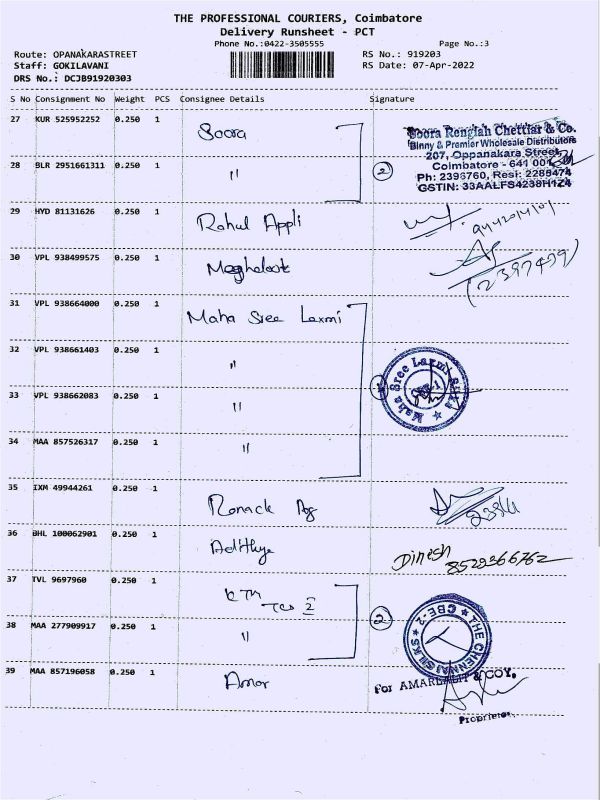 THE PROFESSIONAL COURIERS, Coimbatore
Delivery Runsheet - PCT
Phone No.:0422-3505555 Page No.:3
Route: OPANAKARASTREET RS No.: 919203
Staff: GOKILAVANI RS Date: 07-Apr-2022
DRS No.: DCJB91920303
S No Consignment No Weight PCS Consignee Details Signature
27 KUR 525952252 0.250 1 Soora
Soora Rengiah Chettiar & Co.
Binny & Premier Wholesale Distributors
207, Oppanakara Street,
Coimbatore - 641 001
Ph: 2396760, Resi: 2289474
GSTIN: 33AALFS4238H1Z4
28 BLR 2951661311 0.250 1 " 2
29 HYD 81131626 0.250 1 Rahul Appli
30 VPL 938499575 0.250 1
(2397479)
31 VPL 938664000 0.250 1 Maha Sree Laxmi
32 VPL 938661403 0.250 1 "
Maha Sree Laxmi Silks
33 VPL 938662083 0.250 1 "
34 MAA 857526317 0.250 1 "
35 IXM 49944261 0.250 1 Ronack
36 BHL 100062901 0.250 1 Adithya Dinesh
8529366762
37 TVL 9697960 0.250 1 KTM
38 MAA 277909917 0.250 1 " 2
THE CHENNAI SILKS CBE-2
39 MAA 857196058 0.250 1 Amor
For & COY.
Proprietor.